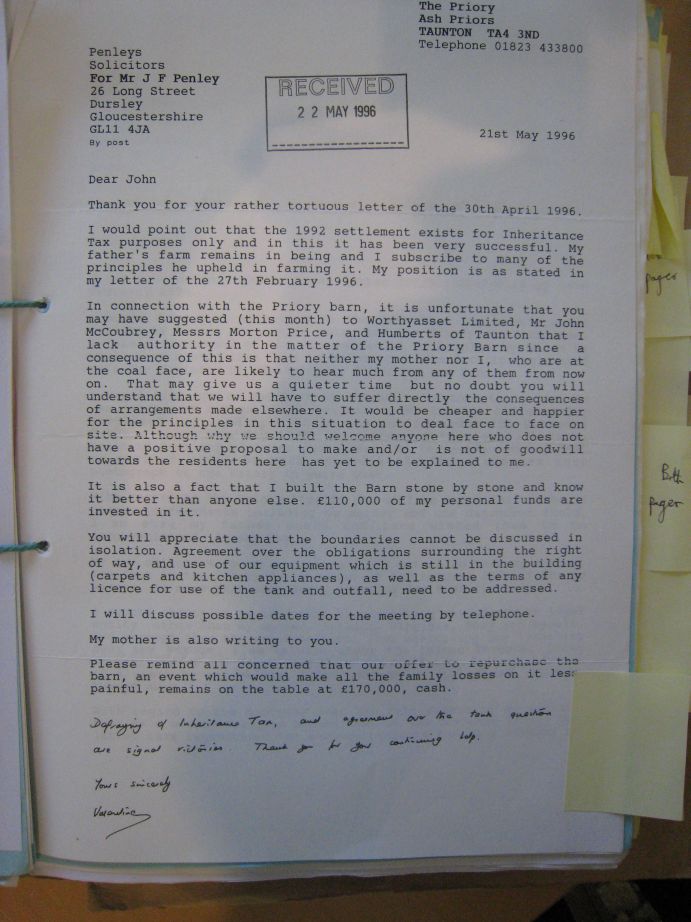 The Priory
Ash Priors
TAUNTON TA4 3ND
Telephone 01823 433800
Penleys
Solicitors
For Mr J F Penley
26 Long Street
Dursley
Gloucestershire
GL11 4JA
By post
RECEIVED
22 MAY 1996
21st May 1996
Dear John
Thank you for your rather tortuous letter of the 30th April 1996.
I would point out that the 1992 settlement exists for Inheritance
Tax purposes only and in this it has been very successful. My
father's farm remains in being and I subscribe to many of the
principles he upheld in farming it. My position is as stated in
my letter of the 27th February 1996.
In connection with the Priory barn, it is unfortunate that you
may have suggested (this month) to Worthyasset Limited, Mr John
McCoubrey, Messrs Morton Price, and Humberts of Taunton that I
lack authority in the matter of the Priory Barn since a
consequence of this is that neither my mother nor I, who are at
the coal face, are likely to hear much from any of them from now
on. That may give us a quieter time but no doubt you will
understand that we will have to suffer directly the consequences
of arrangements made elsewhere. It would be cheaper and happier
for the principles in this situation to deal face to face on
site. Although why we should welcome anyone here who does not
have a positive proposal to make and/or is not of goodwill
towards the residents here has yet to be explained to me.
It is also a fact that I built the Barn stone by stone and know
it better than anyone else. £110,000 of my personal funds are
invested in it.
You will appreciate that the boundaries cannot be discussed in
isolation. Agreement over the obligations surrounding the right
of way, and use of our equipment which is still in the building
(carpets and kitchen appliances), as well as the terms of any
licence for use of the tank and outfall, need to be addressed.
I will discuss possible dates for the meeting by telephone.
My mother is also writing to you.
Please remind all concerned that our offer to repurchase the
barn, an event which would make all the family losses on it less
painful, remains on the table at £170,000, cash.
Defraying of Inheritance Tax, and agreement over the tank question
are signal victories. Thank you for your continuing help.
Yours sincerely
Valentine
pager
Both
pager